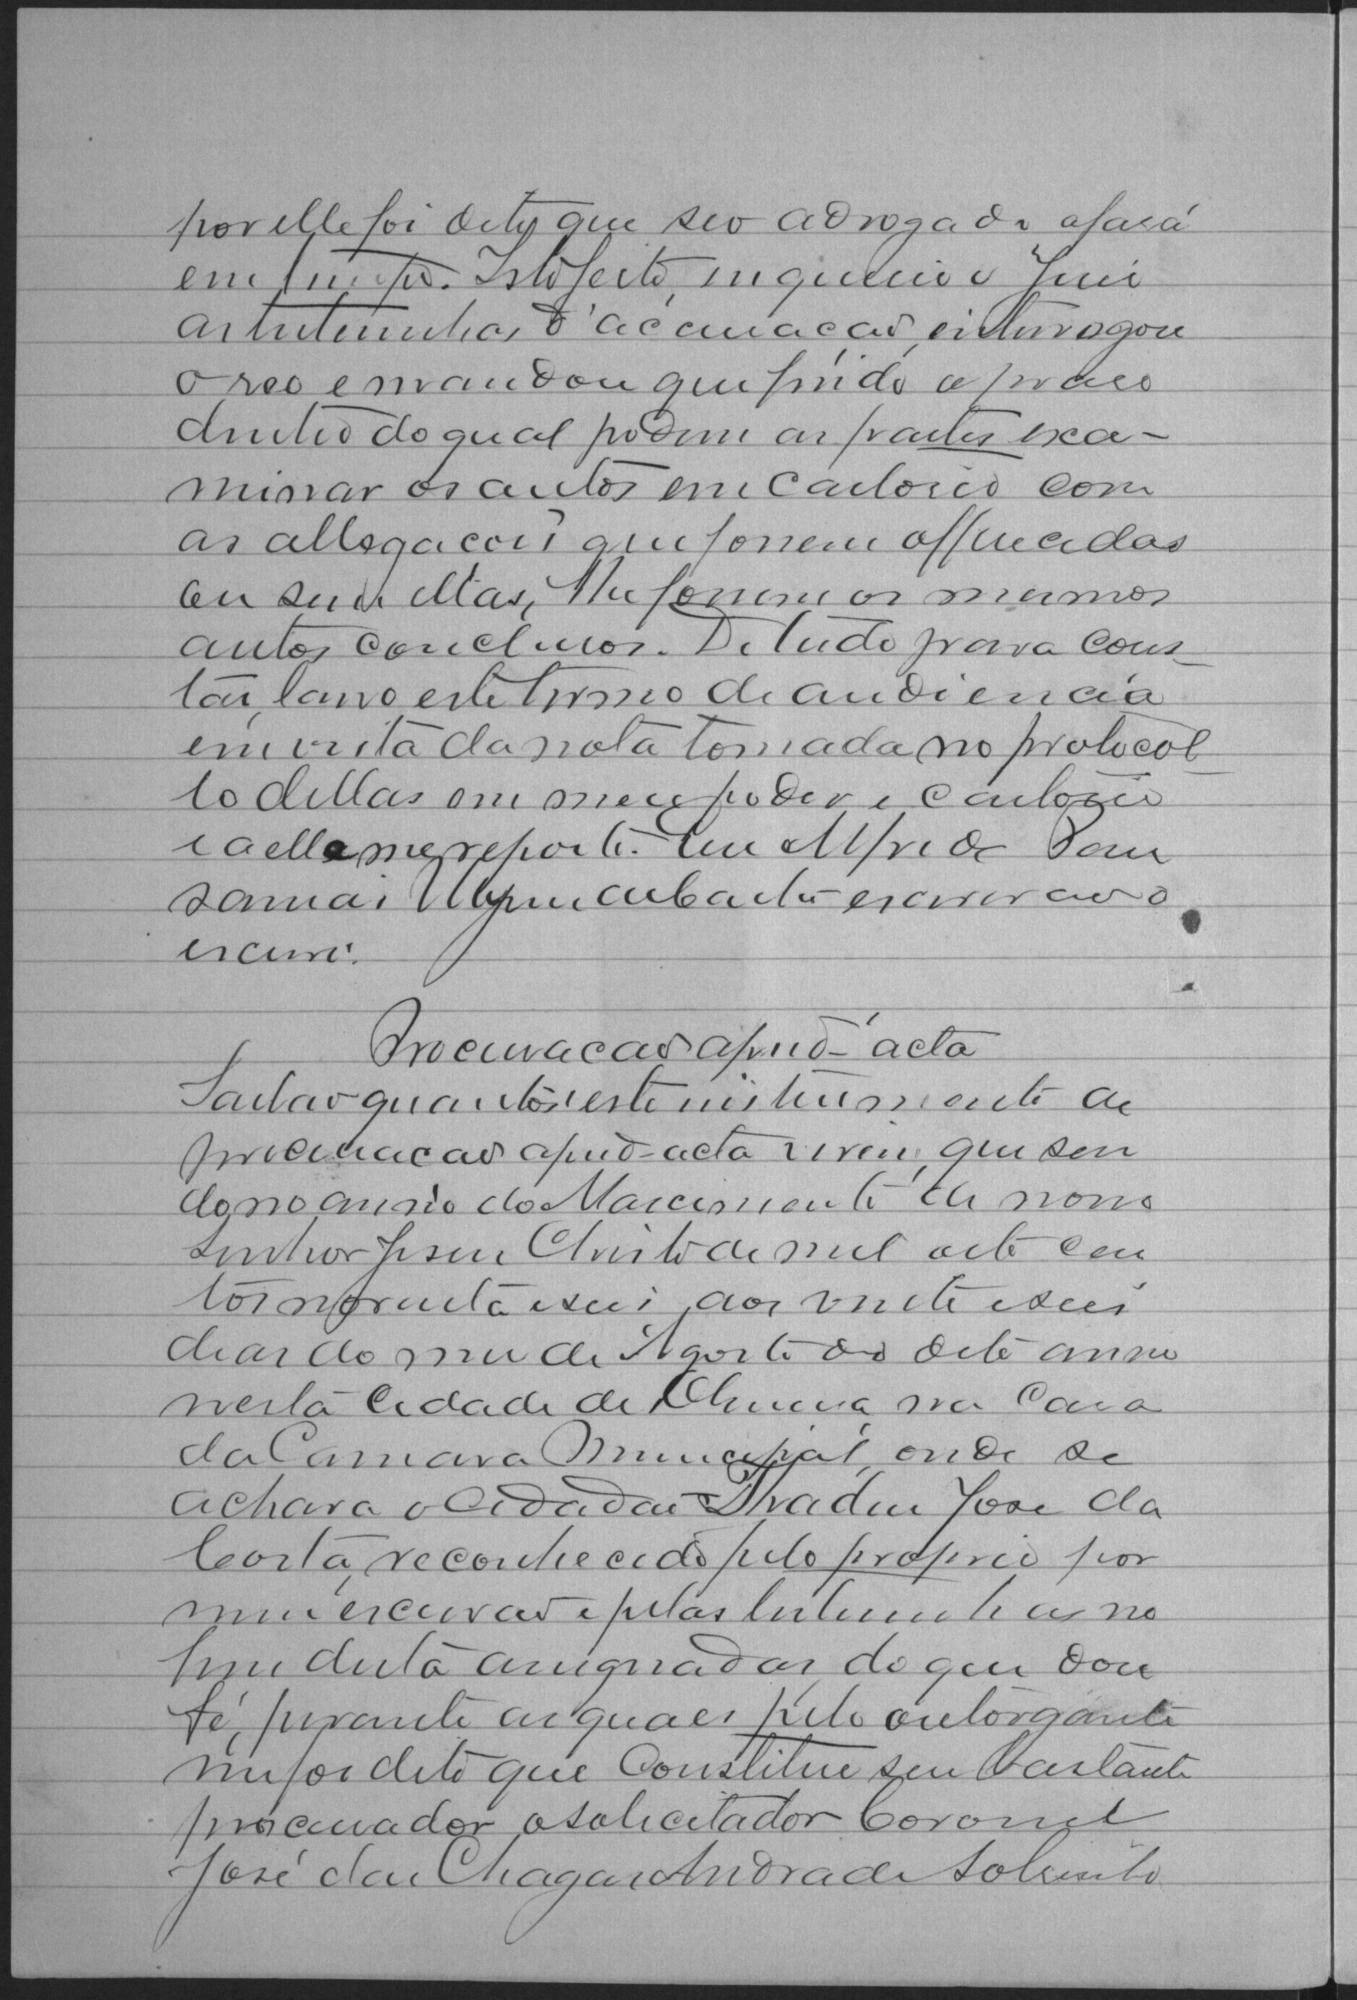 por elle foi dito que seo advogado a fará
em tempo. Isto feito, inquirio o Juiz
as testemunhas d'accusação, interrogou
o reo e mandou que findo o praso
dentro do qual podem as partes exa-
minar os autos em Cartorio com
as allegações que forem offerecidas
ou sem ellas, lhe fossem os mesmos
autos conclusos. De tudo para cons-
tar, lavro este termo de audiencia
em vista da nota tomada no protocol
lo dellas em meu poder e cartorio
e a elle me reporto. Eu Alfredo
escrivão o
escrevi.
Procuração apud-acta
Saibão quantos este instrumento de
procuração apud-acta virem, que sen
do no anno do Nascimento de nosso
Senhor Jesus Christo de mil oito cen
tos noventa e seis, aos vinte e seis
dias do mez de Agosto do dito anno
nesta Cidade de na Casa
da Camara Municipal, onde se
achava o Cidadão Thadeu José da
Costa, reconhecido pelo proprio por
mim escrivão e pelas testemunhas no
fim desta assignadas, do que dou
fé, perante as quaes pelo outorgante
me foi dito que Constitue seu bastante
procurador o solicitador Coronel
José das Chagas Andrade Sobrinho